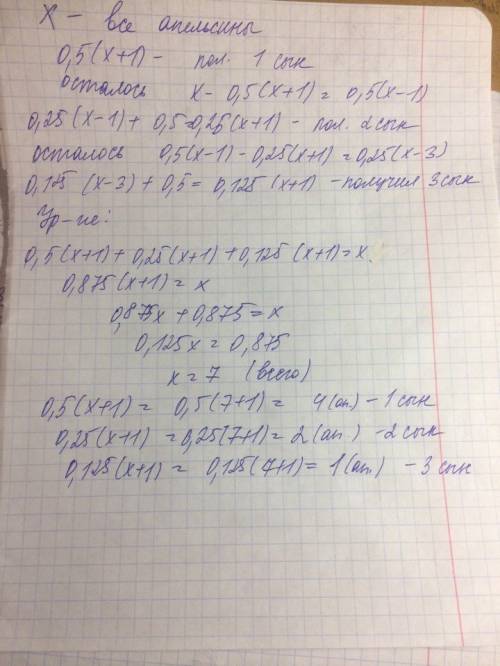 x — все апельсины
0,5(x+1) — пол. 1 сын
осталось x - 0,5(x+1) = 0,5(x-1)
0,25(x-1) + 0,5=0,25(x+1) - пол. 2 сын
осталось 0,5(x-1) - 0,25(x+1) = 0,25(x-3)
0,125 (x-3) + 0,5 = 0,125(x+1) - получил 3 сын
Ур-ие:
0,5(x+1) + 0,25(x+1) + 0,125(x+1) = x
0,875(x+1) = x
0,875x + 0,875 = x
0,125x = 0,875
x = 7 (всего)
0,5(x+1) = 0,5(7+1) = 4(ап.) - 1 сын
0,25(x+1) = 0,25(7+1) = 2(ап) - 2 сын
0,125(x+1) = 0,125(7+1) = 1(ап. - 3 сын